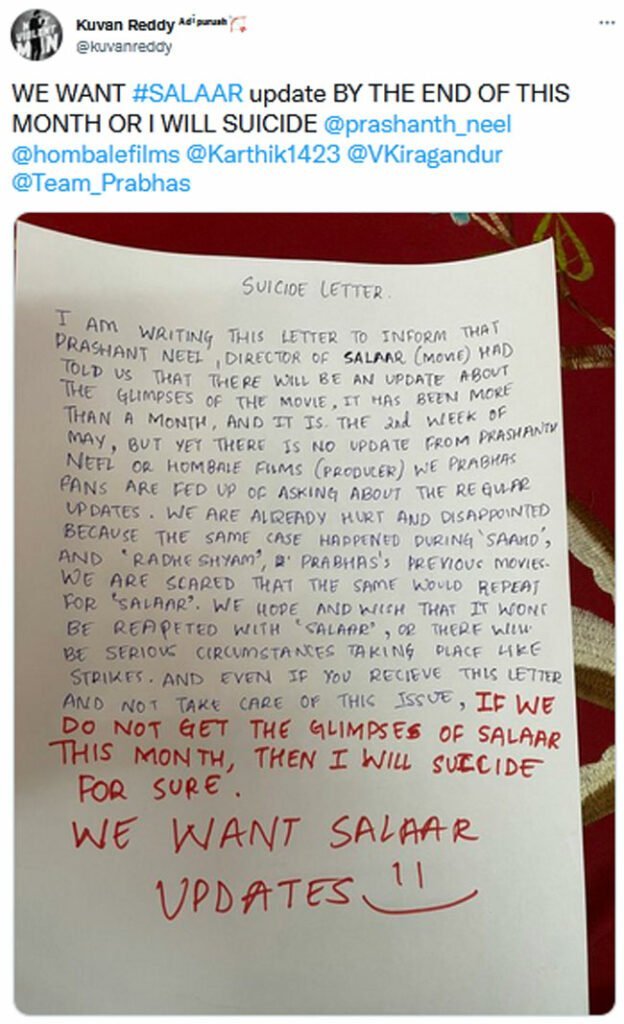 Kuvan Reddy ᴬᵈⁱᵖᵘʳᵘˢʰ
@kuvanreddy
WE WANT #SALAAR update BY THE END OF THIS
MONTH OR I WILL SUICIDE @prashanth_neel
@hombalefilms @Karthik1423 @VKiragandur
@Team_Prabhas
SUICIDE LETTER.
I AM WRITING THIS LETTER TO INFORM THAT
PRASHANT NEEL, DIRECTOR OF SALAAR (MOVIE) HAD
TOLD US THAT THERE WILL BE AN UPDATE ABOUT
THE GLIMPSES OF THE MOVIE, IT HAS BEEN MORE
THAN A MONTH, AND IT IS THE 2nd WEEK OF
MAY, BUT YET THERE IS NO UPDATE FROM PRASHANTH
NEEL OR HOMBALE FILMS (PRODUCER) WE PRABHAS
FANS ARE FED UP OF ASKING ABOUT THE REGULAR
UPDATES. WE ARE ALREADY HURT AND DISAPPOINTED
BECAUSE THE SAME CASE HAPPENED DURING 'SAAHO',
AND 'RADHE SHYAM', PRABHAS'S PREVIOUS MOVIES.
WE ARE SCARED THAT THE SAME WOULD REPEAT
FOR 'SALAAR'. WE HOPE AND WISH THAT IT WONT
BE REAPETED WITH 'SALAAR', OR THERE WILL
BE SERIOUS CIRCUMSTANCES TAKING PLACE LIKE
STRIKES. AND EVEN IF YOU RECIEVE THIS LETTER
AND NOT TAKE CARE OF THIS ISSUE, IF WE
DO NOT GET THE GLIMPSES OF SALAAR
THIS MONTH, THEN I WILL SUICIDE
FOR SURE.
WE WANT SALAAR
UPDATES !!